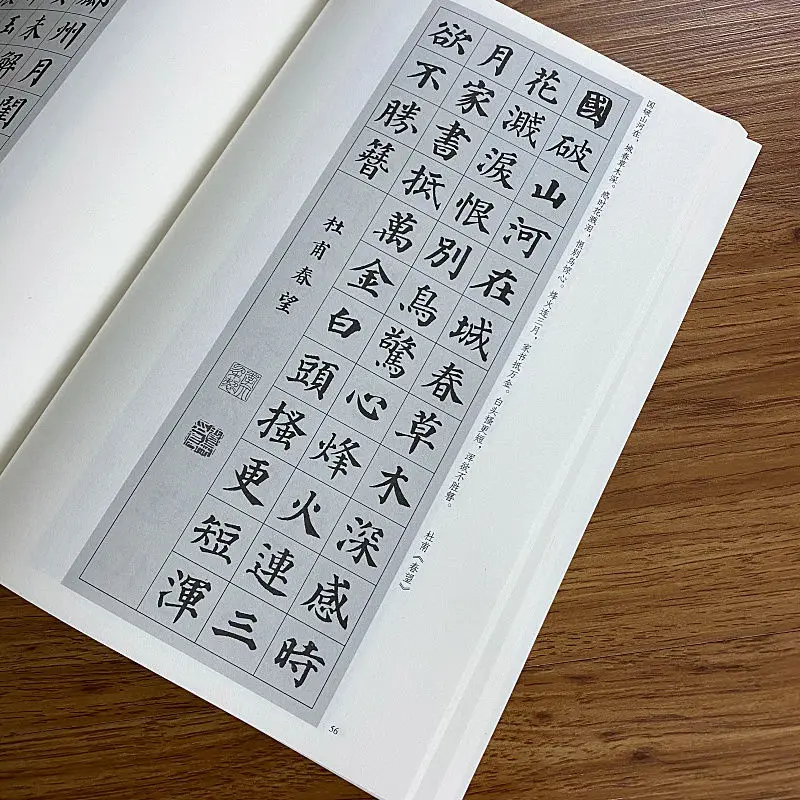 国破山河在，城春草木深。感时花溅泪，恨别鸟惊心。烽火连三月，家书抵万金。白头搔更短，浑欲不胜簪。
杜甫《春望》
國破山河在城春草木深感時
花濺淚恨別鳥驚心烽火連三
月家書抵萬金白頭搔更短渾
欲不勝簪
杜甫春望
56
州月閏
未解